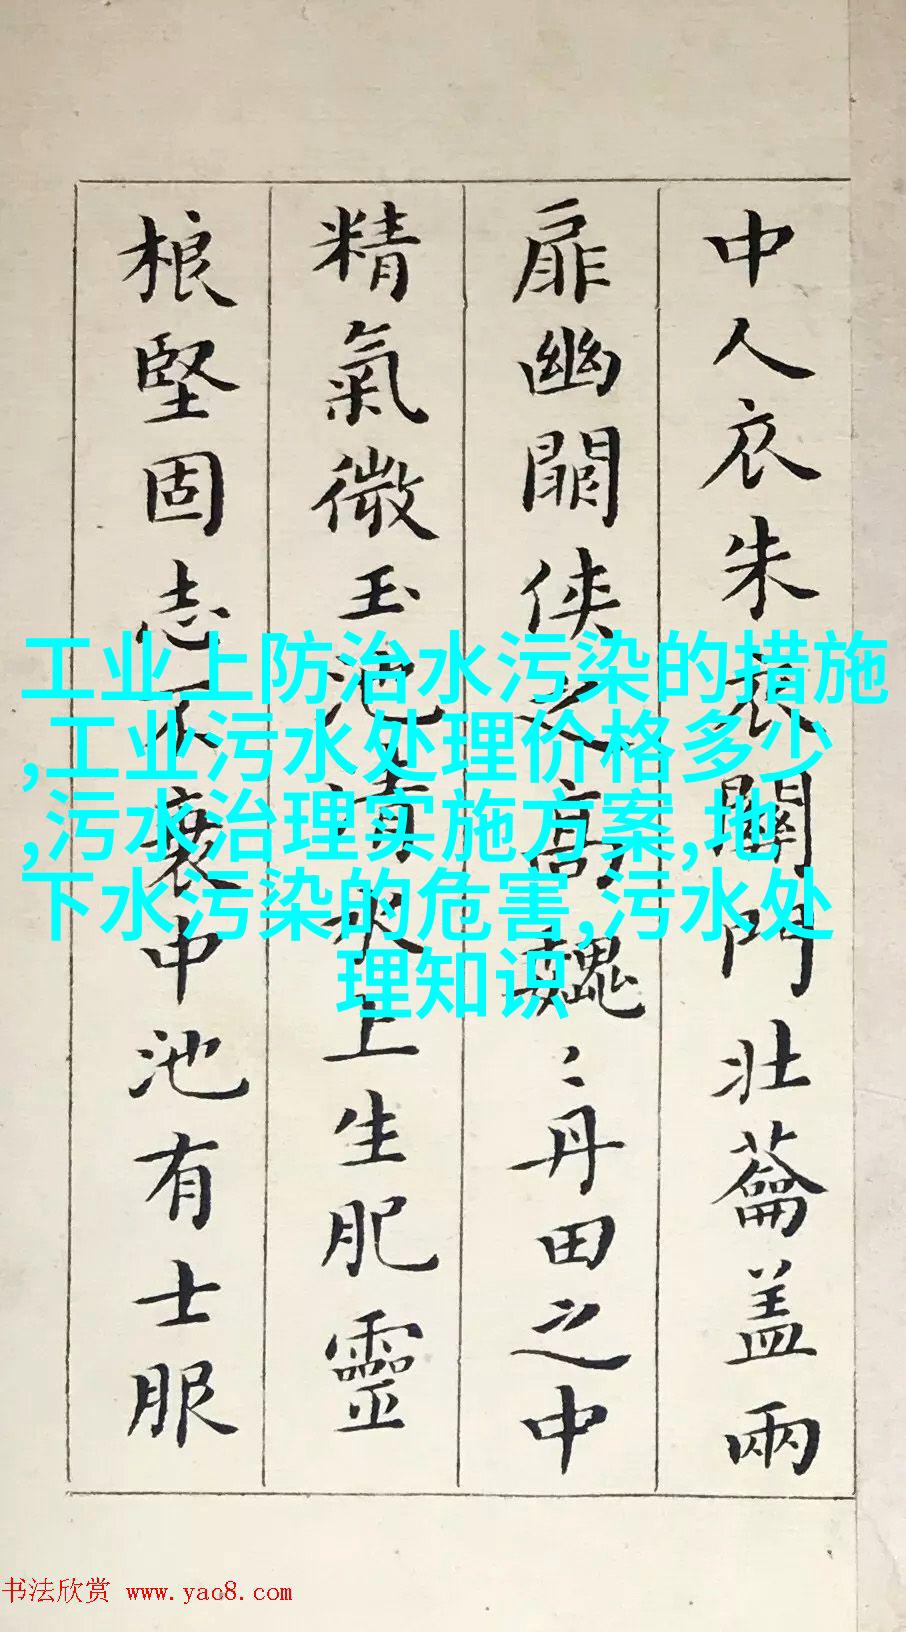 中人衣朱衣關門壯蘥盖兩
扉幽關侠之高魏〻丹田之中
精氣微玉池清水上生肥靈
根堅固志不衰中池有士服
工业上防治水污染的措施
,工业污水处理价格多少
,污水治理实施方案,地
下水污染的危害,污水处
理知识
书法欣赏 www.yac8.com